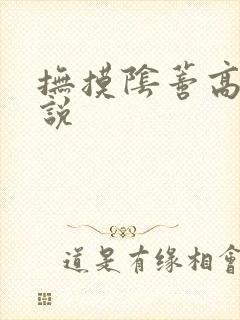 撫摸陰蒂高
說
道是有缘相會